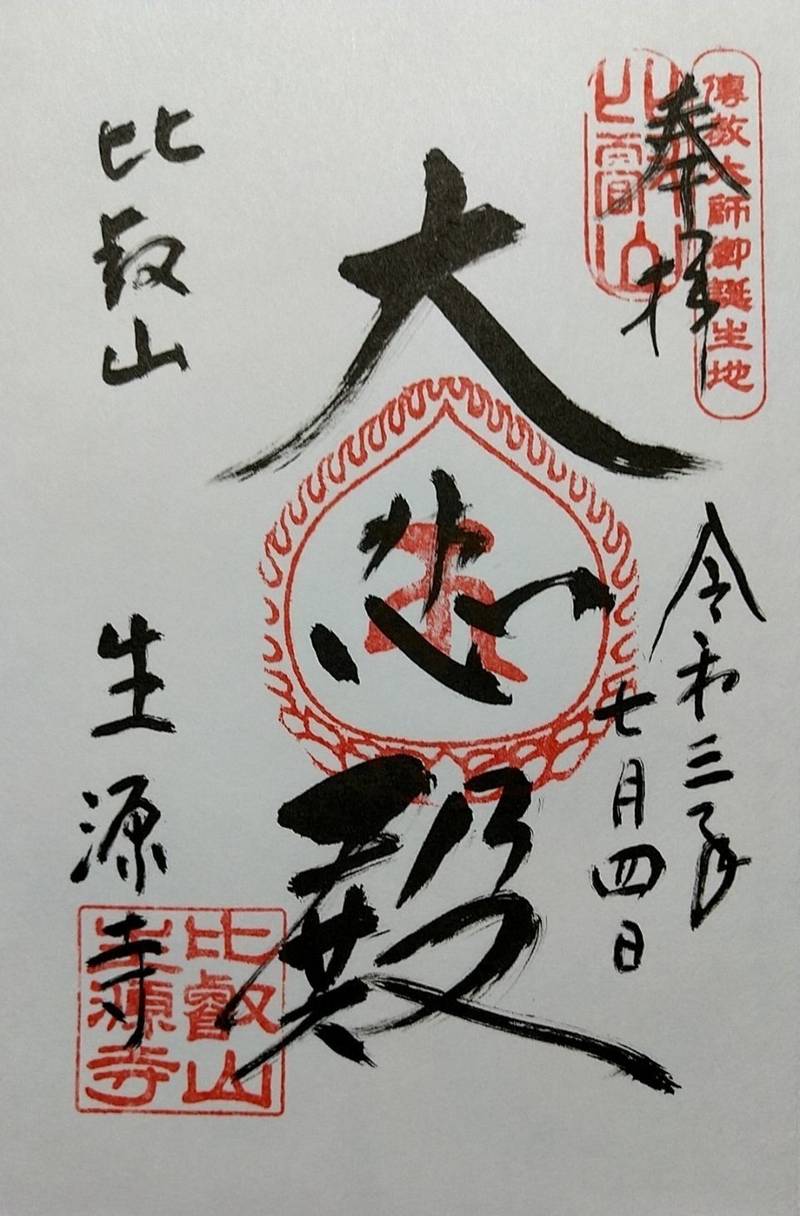 傳教大師御誕生地
奉拝
比叡山
令和三年
七月四日
大悲殿
比叡山
生源寺
比叡山
生源寺